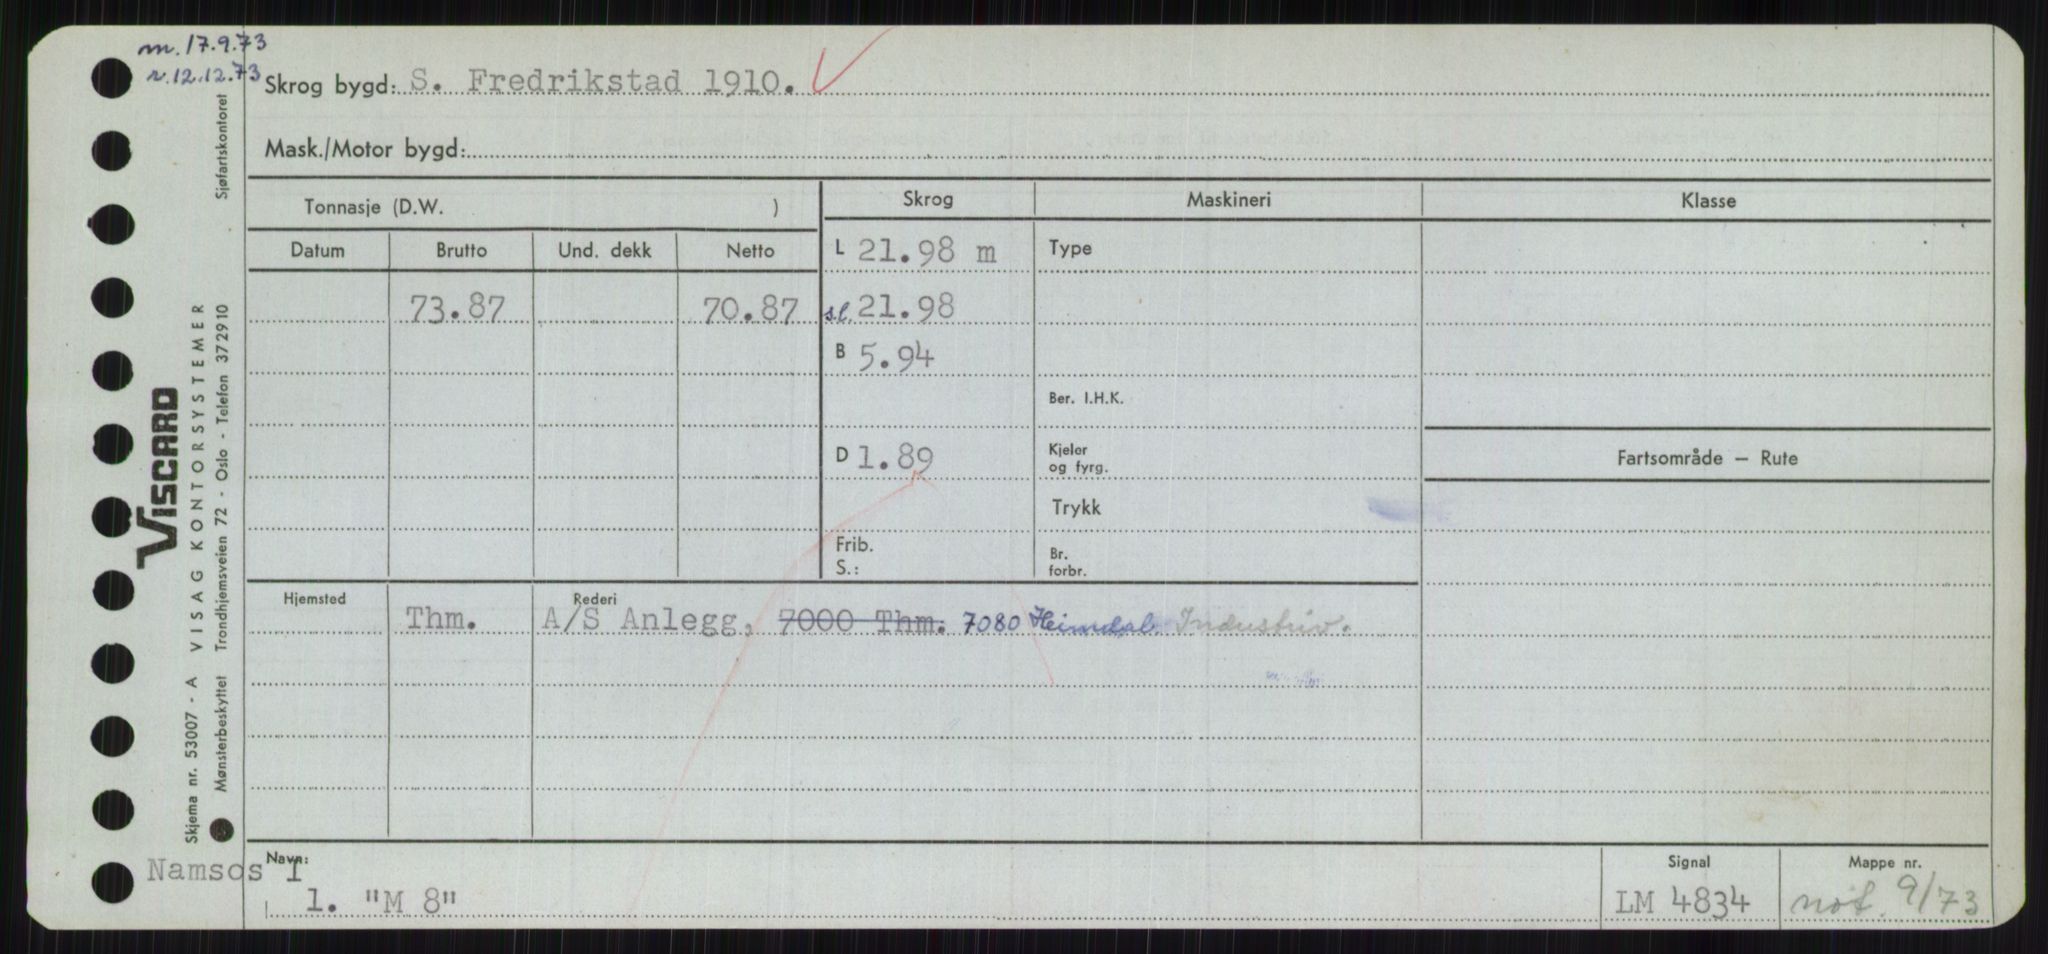 m. 17.9.73
r. 12.12.73
Skrog bygd: S. Fredrikstad 1910.
Mask./Motor bygd:
Tonnasje (D.W. )
Skrog Maskineri Klasse
Datum Brutto Und. dekk Netto
L 21.98 m Type
73.87 70.87 s.l. 21.98
B 5.94
Ber. I.H.K.
D 1.89 Kjeler og fyrg.
Fartsområde — Rute
Trykk
Frib.
S.:
Br. forbr.
Hjemsted Rederi
Thm. A/S Anlegg, 7000 Thm. 7080 Heimdal. Industriv.
Navn:
Namsos I
1. "M 8"
Signal
LM 4834
Mappe nr.
not. 9/73
Sjøfartskontoret
VISCARD
Skjema nr. 53007 - A VISAG KONTORSYSTEMER
Mønsterbeskyttet Trondhjemsveien 72 - Oslo - Telefon 372910